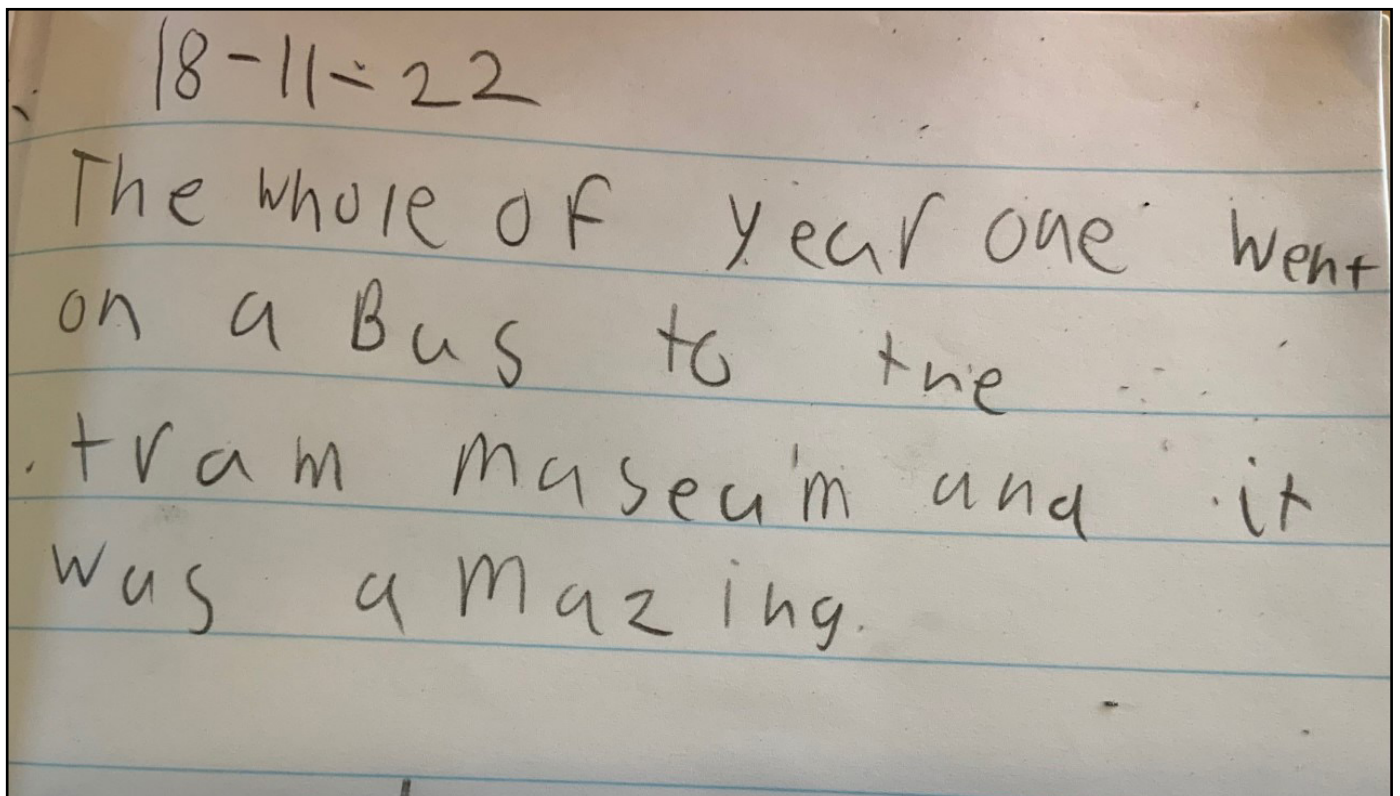 18-11-22
The whole of year one went
on a Bus to the
tram museum and it
was amazing.